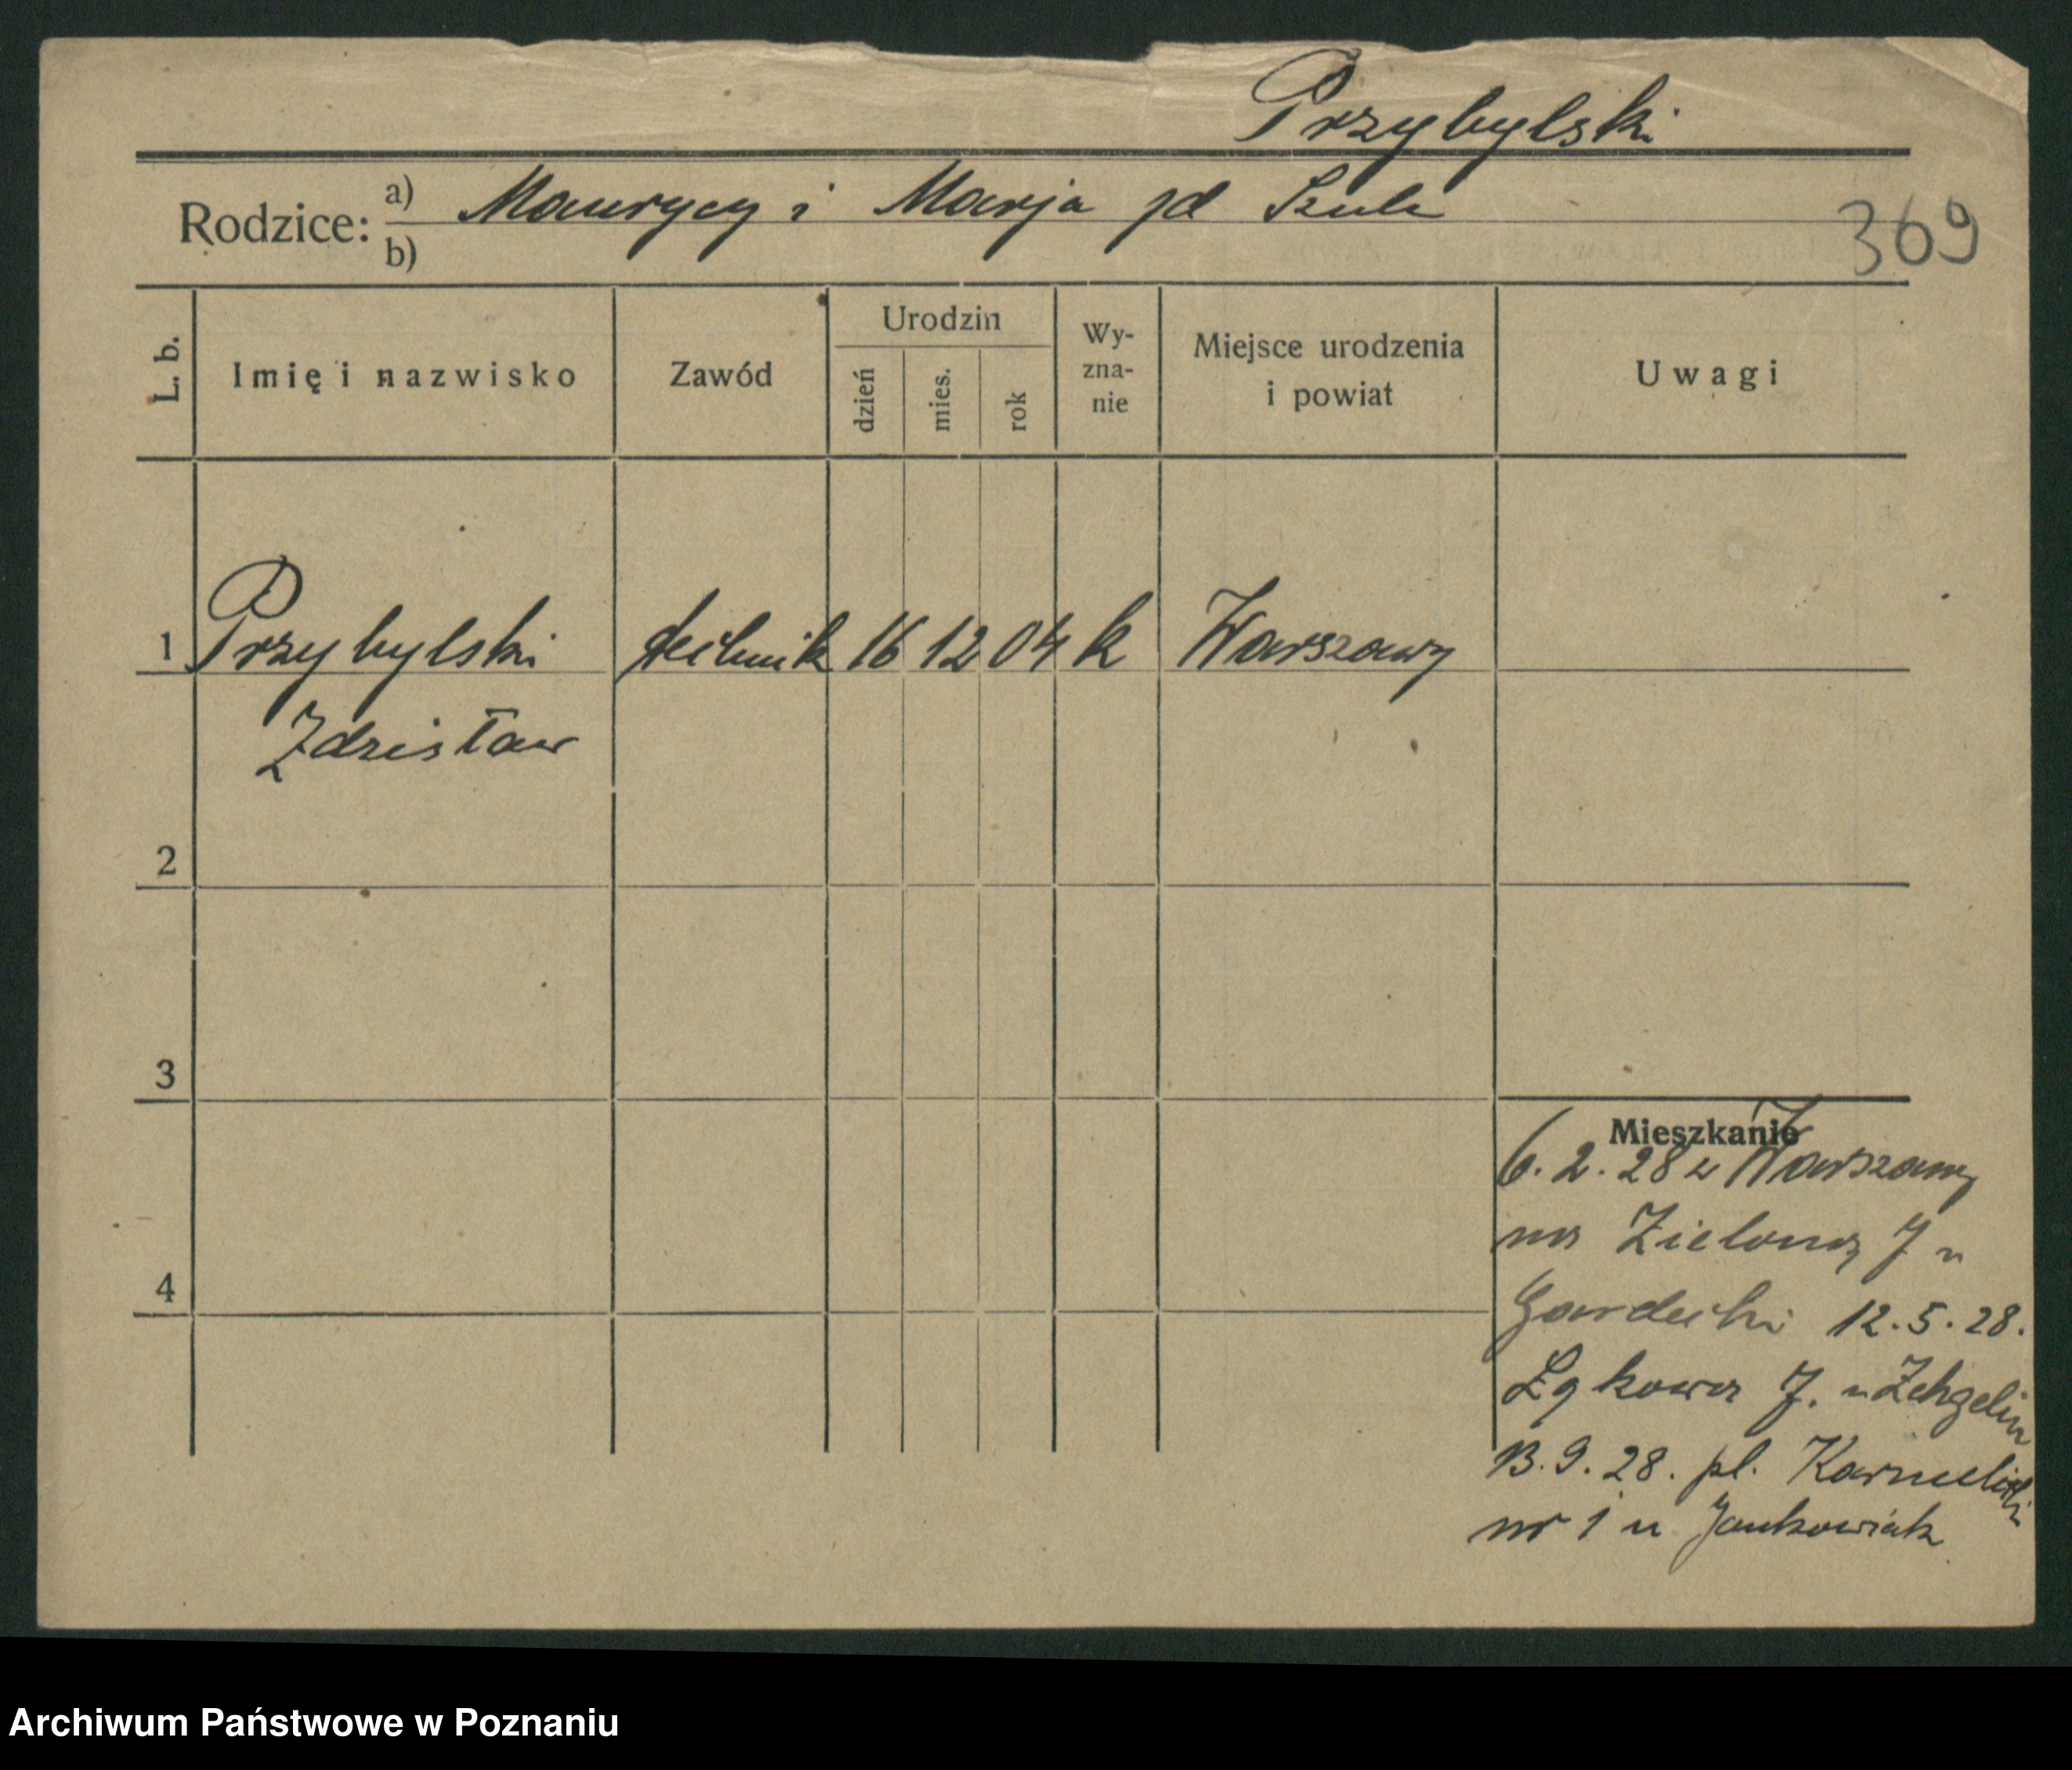 Przybylski
Rodzice: a) Maurycy i Marja zd Szulc
b)
369
L. b.
Imię i nazwisko
Zawód
Urodzin
dzień
mies.
rok
Wy-
zna-
nie
Miejsce urodzenia
i powiat
Uwagi
1 Przybylski technik 16 12 04 k Warszawy
Zdzisław
2
3
4
Mieszkanie
6. 2. 28 z Warszawy
na Zieloną 7 u
Gardecki 12. 5. 28.
Łąkowa 7. u
13. 9. 28. pl. Karmelicki
nr 1 u Jankowiak
Archiwum Państwowe w Poznaniu